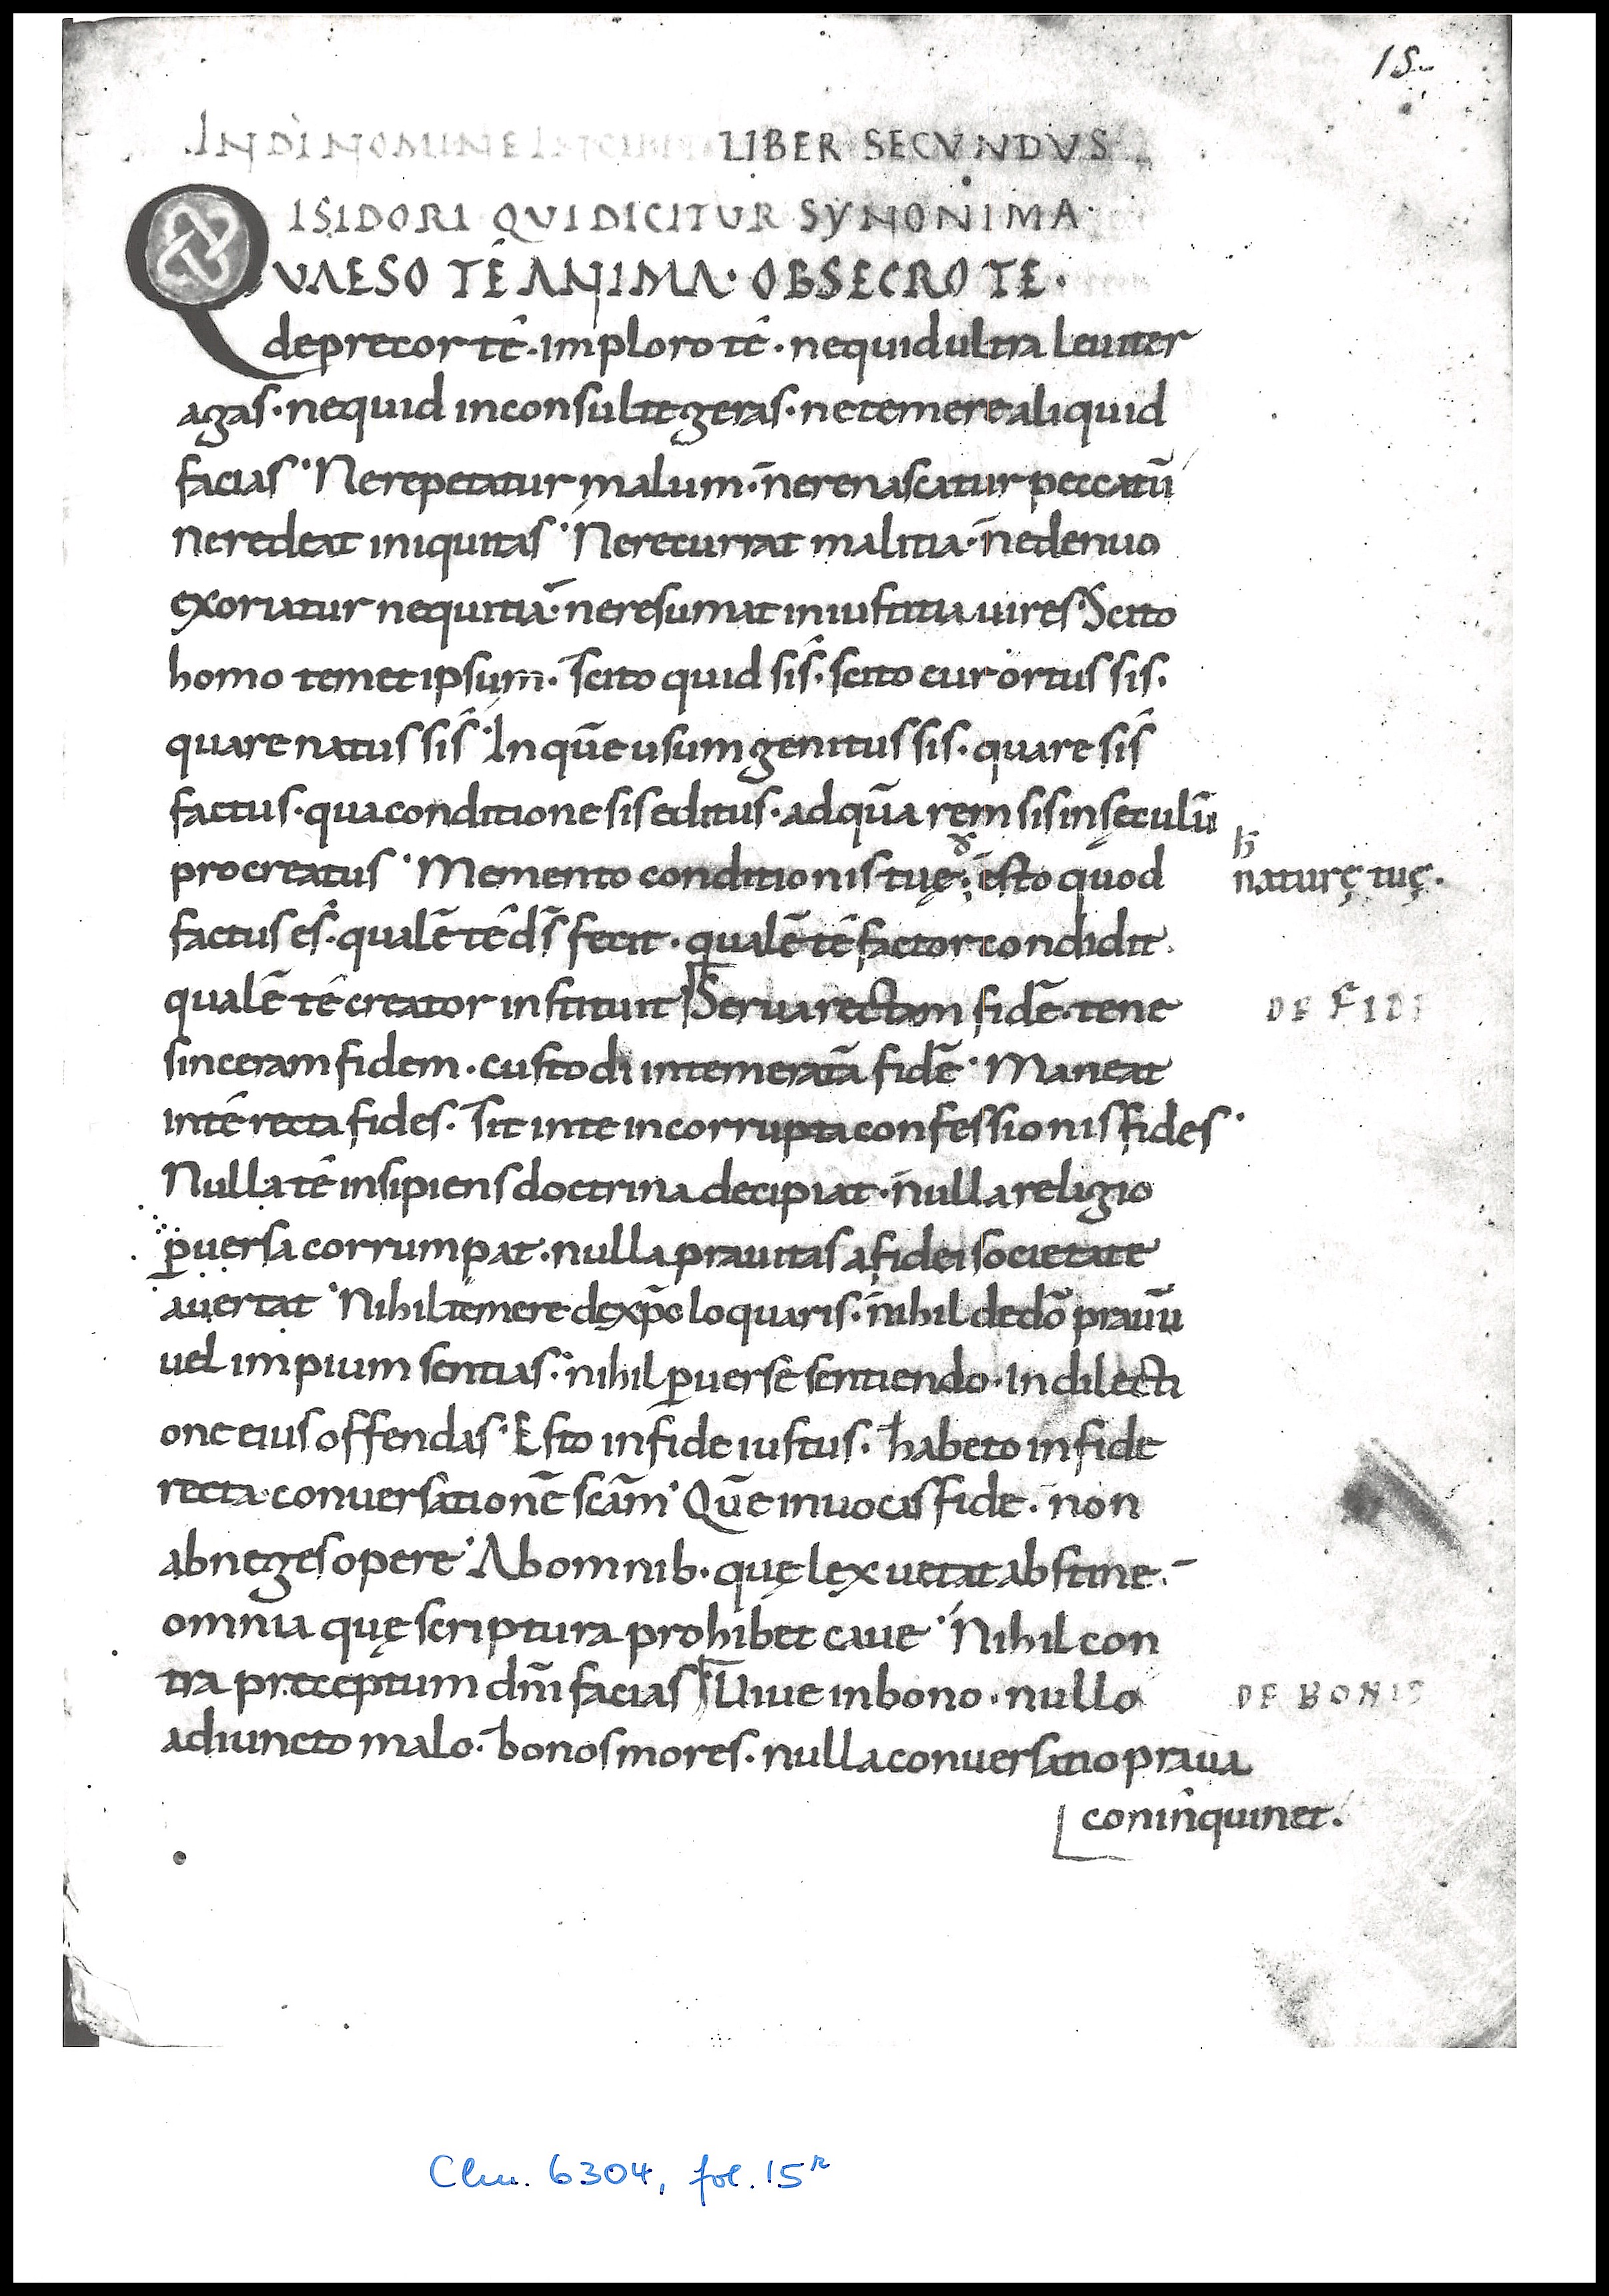 15
IN DI NOMINE INCIPIT LIBER SECVNDVS
ISIDORI QVI DICITUR SYNONIMA·
QVAESO TÊ ANIMA· OBSECRO TE·
deprecor tê· imploro tê· nequid ultra leuiter
agas· nequid inconsulte geras· ne temere aliquid
facias· Ne repetatur malum· ne renascatur peccatū
Ne redeat iniquitas· Ne recurrat malitia· ne denuo
exoriatur nequitia· ne resumat iniustitia uires· Scito
homo temetipsum· scito quid sîs· scito cur ortus sis·
quare natus sîs· In que usum genitus sis· quare sîs
factus· qua conditione sis editus· ad quā rem sis in sęculū
procreatus· Memento conditionis tuę· esto quod
naturę tuę·
factus es· qualē tê ds̄ fecit· qualē tê factor condidit·
qualē tê creator instituit· Serua rectam fidē· tene
DE FIDE
sinceram fidem· custodi intemeratā fidē· Maneat
in tê recta fides· sit in te incorrupta confessionis fides·
Nulla tê insipiens doctrina decipiat· nulla religio
ꝑuersa corrumpat· nulla prauitas a fidei societate
auertat· Nihil temere de xp̄o loquaris· nihil de dō prauū
uel impium sentias· nihil ꝑuerse sentiendo· In dilecti
one eius offendas· Esto in fide iustus· habeto in fide
recta conuersationē scām· Quē inuocas fide· non
abneges opere· Ab omnib· quę lex uetat abstine·
omnia quę scriptura prohibet caue· Nihil con
tra preceptum dn̄i facias· Uiue in bono· nullo
DE BONIS
adiuncto malo· bonos mores· nulla conuersatio praua
coninquinet·
Clm. 6304, fol. 15r